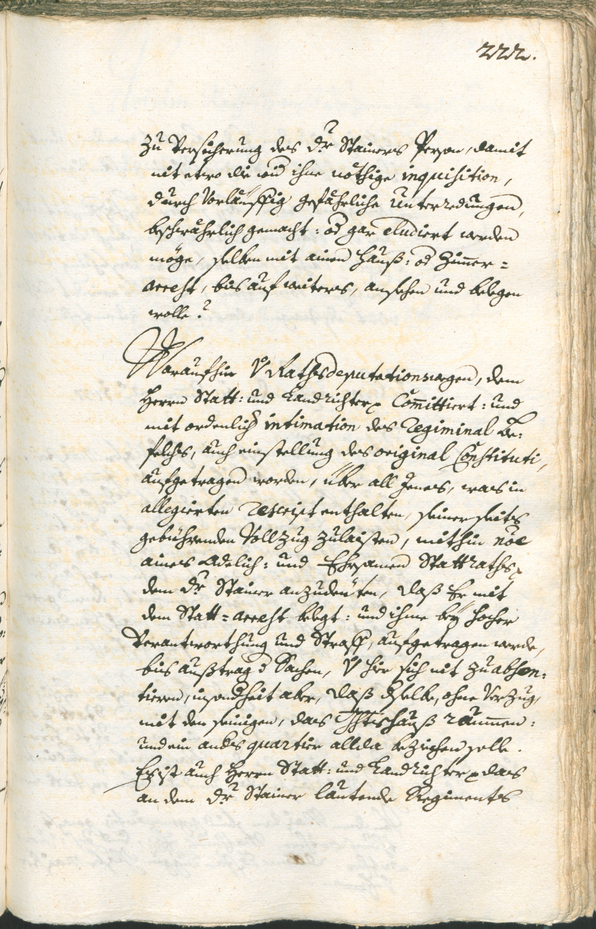 222.
Zu Versicherung des Dr Stainers Person, damit
nit etwo die wid ihne nöthige inquisition,
durch Vorlauffig gefährliche Unterredungen,
beschwährlich gemacht: od gar eludiert werden
möge, selben mit einen Hauß: od Zimer=
arrest, bis auf weiters, ansehen und belegen
wolle?
Woraufhin Rathsdeputationswegen, dem
Herrn Statt: und Landrichter Comittiert: und
mit ordenlich intimation des Regiminal Be:
felchs, auch einstellung des original Constituti,
aufgetragen worden, über all Jenes, was in
allegierten Rescript enthalten, seiner seits
gebührenden Vollzug zulaisten, mithin noe
aines Adelich: und Ehrsamen Stattraths,
dem Dr Stainer anzudeuten, daß Er mit
dem Statt=arrest belegt: und ihme bey hocher
Verantworthung und Straff, aufgetragen werde,
bis außtrag d Sachen, V hier sich nit zu absen:
tieren, insondheit aber, daß dselbe, ohne Verzug,
mit den seinigen, das Ambtshauß räummen:
und ein andes quartier allda beziehen solle.
Erst auch Herrn Statt: und Landrichter das
an dem Dr Stainer lautende Regiments